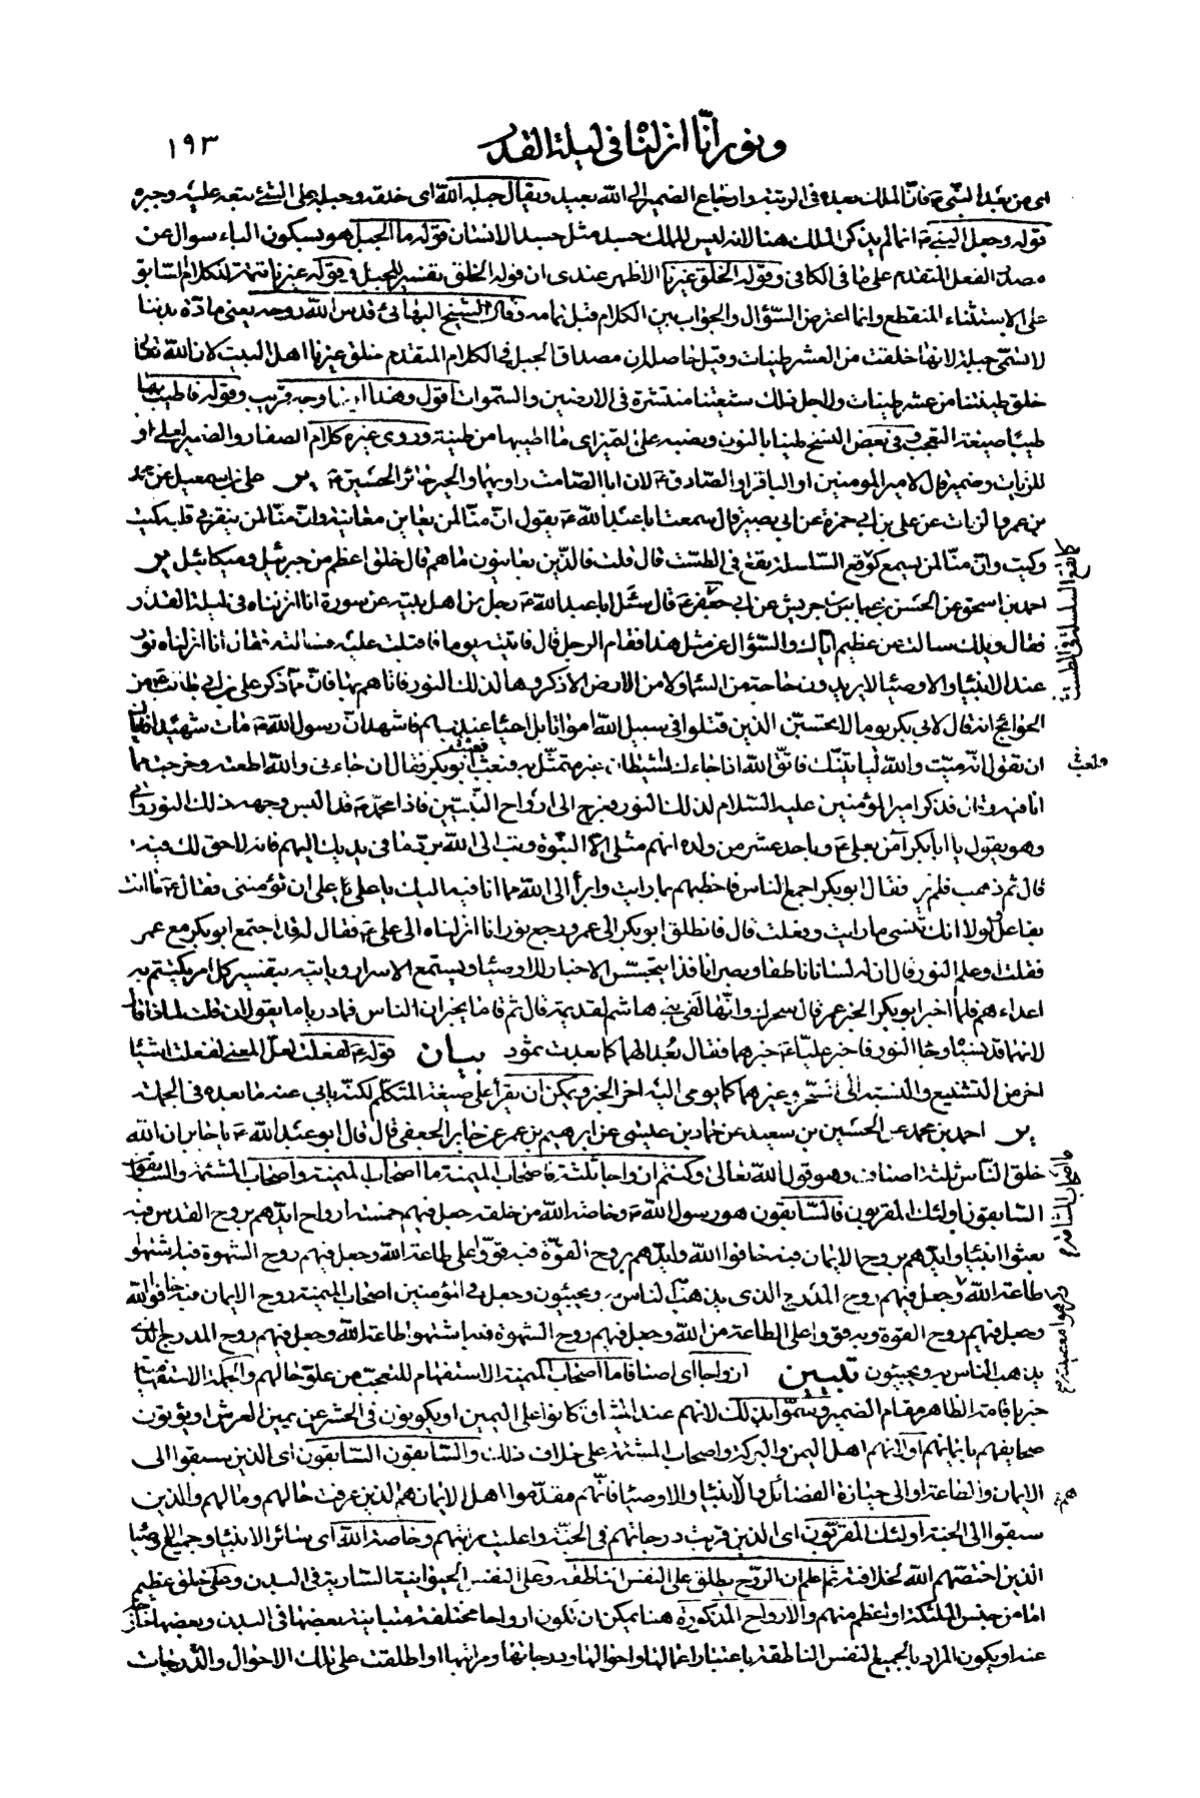 ونور انّا انزلنا فى ليلة القدر
١٩٣
اى من بعد النّبىّ ص فانّ الملك بعده فى الرتبة وارجاع الضمير الى الله بعيد ويقال جبله الله اى خلقه وجبله على الشئ طبعه عليه وجبره
قوله وجعل النبى ص انما لم يذكر الملك هنا لانه ليس للملك جسد مثل جسد الانسان قوله ما الجبل هو بسكون الباء سوال عن
مصدر الفعل المتقدم على ما فى الكافى وقوله الخلق غيرنا الاظهر عندى ان قوله الخلق تفسير للجبل وقوله غيرنا تتمة للكلام السّابق
على الاستثناء المنقطع وانما اعترض السّؤال والجواب بين الكلام قبل تمامه وقال الشيخ البهائى قدس الله روحه يعنى مادّة بدننا
لا تسمّى جبلة لانها خلقت من العشر طينات وقيل حاصله ان مصداق الجبل فى الكلام المتقدم خلق غيرنا اهل البيت لان الله تعالى
خلق طينتنا من عشر طينات ولاجل ذلك شيعتنا منتشرة فى الارضين والسّموات اقول وهذا ايضا وجه قريب وقوله فاطيب بها
طيبا صيغة التعجب وفى بعض النسخ طينا بالنون ونصبه على التميز اى ما اطيبها من طينة وروى غيره كلام الصفار والضمير لعلى او
للزيات وضمير قال لامير المومنين او الباقر او الصّادق ع لان ابا الصّامت راويهما والحير حائر الحسين ع ير على بن اسمعيل عن محمد
بن عمرو الزيات عن على بن ابى حمزة عن ابى بصير قال سمعت ابا عبد الله ع يقول انّ منّا لمن يعاين معاينة وانّ منّا لمن ينقر فى قلبه كيت
وكيت وانّ منّا لمن يسمع كوقع السّلسلة يقع فى الطست قال قلت فالذّين يعاينون ما هم قال خلق اعظم من جبرئيل وميكائيل ير
احمد بن اسحق عن الحسن بن عباس بن جريش عن ابى جعفر ع قال سئل ابا عبد الله ع رجل من اهل بيته عن سورة انا انزلناه فى ليلة القدر
فقال ويلك سالت عن عظيم ايّاك والسّؤال عن مثل هذا فقام الرجل قال فاتيته يوما فاقبلت عليه فسالته فقال انا انزلناه نور
عند الانبياء والاوصياء لا يريدون حاجة من السّماء ولا من الارض الا ذكروها لذلك النور فاتاهم بها فانّ ممّا ذكر على بن ابى طالب ع من
الحوائج انه قال لابى بكر يوما لا تحسبنّ الذين قتلوا فى سبيل الله امواتا بل احياء عند ربهم فاشهد انّ رسول الله ص مات شهيدا فايّاك
ان تقول انّه ميّت والله لياتينّك فاتّق الله اذا جاءك الشيطان غير متمثّل به فعجب ابو بكر فقال ان جاءنى والله اطعته وخرجت مما
انا فيه قال فذكر امير المؤمنين عليه السّلام لذلك النور فعرج الى ارواح النّبيّين فاذا محمّد ص قد البس وجهه ذلك النور واتى
وهو يقول يا ابا بكر آمن بعلى ع وباحد عشر من ولده انهم مثلى الّا النّبوّة وتب الى الله بردّ ما فى يديك اليهم فانه لا حق لك فيه
قال ثم ذهب فلم ير فقال ابو بكر اجمع الناس فاخطبهم بما رايت وابرأ الى الله مما انا فيه اليك يا على على ان تؤمننى فقال ع ما انت
بفاعل ولولا انك تنسى ما رايت وفعلت قال فانطلق ابو بكر الى عمر ورجع نور انا انزلناه الى على ع فقال له قد اجتمع ابو بكر مع عمر
فقلت وعلم النور قال ان له لسانا ناطقا وبصرا نافذا يتجسّس الاخبار للاوصياء ويستمع الاسرار وياتيهم بتفسير كل امر يكتتم به
اعداءهم فلمّا اخبر ابو بكر الخبر عمر قال سحرك وانّها لفى بنى هاشم لقديمة قال ثم قاما يخبران الناس فما دريا ما يقولان قلت لماذا قال
لانهما قد نسياه وجاء النور فاخبر عليّا ع خبرهما فقال بُعدا لهما كما بعدت ثمود بيان قوله ع لفعلت لعلّ المعنى لفعلت اشياء
اخر من التشنيع والنسبة الى السّحر وغيرهما كما يومى اليه اخر الخبر ويمكن ان يقرأ على صيغة المتكلّم لكنّه يابى عنه ما بعده فى الجملة
ير احمد بن محمد عن الحسين بن سعيد عن حماد بن عيسى عن ابراهيم بن عمر عن جابر الجعفى قال قال ابو عبد الله ع يا جابر ان الله
خلق النّاس ثلثة اصناف وهو قول الله تعالى وكنتم ازواجا ثلثة فاصحاب الميمنة ما اصحاب الميمنة واصحاب المشئمة والسابقون
السّابقون اولئك المقربون فالسّابقون هو رسول الله ص وخاصة الله من خلقه جعل فيهم خمسة ارواح ايّدهم بروح القدس فبه
بعثوا انبياء وايّدهم بروح الايمان فبه خافوا الله وايّدهم بروح القوّة فبه قووا على طاعة الله وجعل فيهم روح الشهوة فبه اشتهوا
طاعة الله وجعل فيهم روح المدرج الذى يذهب به الناس ويجيئون وجعل فى المؤمنين اصحاب الميمنة روح الايمان فبه خافوا الله
وجعل فيهم روح القوة فبه قووا على الطاعة من الله وجعل فيهم روح الشهوة فبه اشتهوا طاعة الله وجعل فيهم روح المدرج الذى
يذهب الناس به ويجيئون تبيين ازواجا اى اصنافا ما اصحاب الميمنة الاستفهام للتعجّب من علوّ حالهم والجملة الاستفهامية
خبر باقامة الظاهر مقام الضمير وسمّوا بذلك لانهم عند الميثاق كانوا على اليمين او يكونون فى الحشر عن يمين العرش او يؤتون
صحايفهم بايمانهم او لانهم اهل اليمن والبركة واصحاب المشئمة على خلاف ذلك والسّابقون السّابقون اى الذين سبقوا الى
الايمان والطاعة او الى حيازة الفضائل او الانبياء والاوصياء فانّهم مقدّموا اهل الايمان هم الذين عرفت حالهم ومالهم والذين
سبقوا الى الجنة اولئك المقربّون اى الذين قربت درجاتهم فى الجنّة واعليت مراتبهم وخاصة الله اى سائر الانبياء وجميع الاوصياء
الذين اختصّهم الله لخلافته ثم اعلم ان الرّوح يطلق على النفس الناطقة وعلى النفس الحيوانية السّارية فى البدن وعلى خلق عظيم
امّا من جنس الملئكة او اعظم منهم والارواح المذكورة هنا يمكن ان تكون ارواحا مختلفة متباينة بعضها فى البدن وبعضها خارجة
عنه او يكون المراد بالجميع النفس الناطقة باعتبار اعمالها واحوالها ودرجاتها ومراتبها او اطلقت على تلك الاحوال والدّرجات